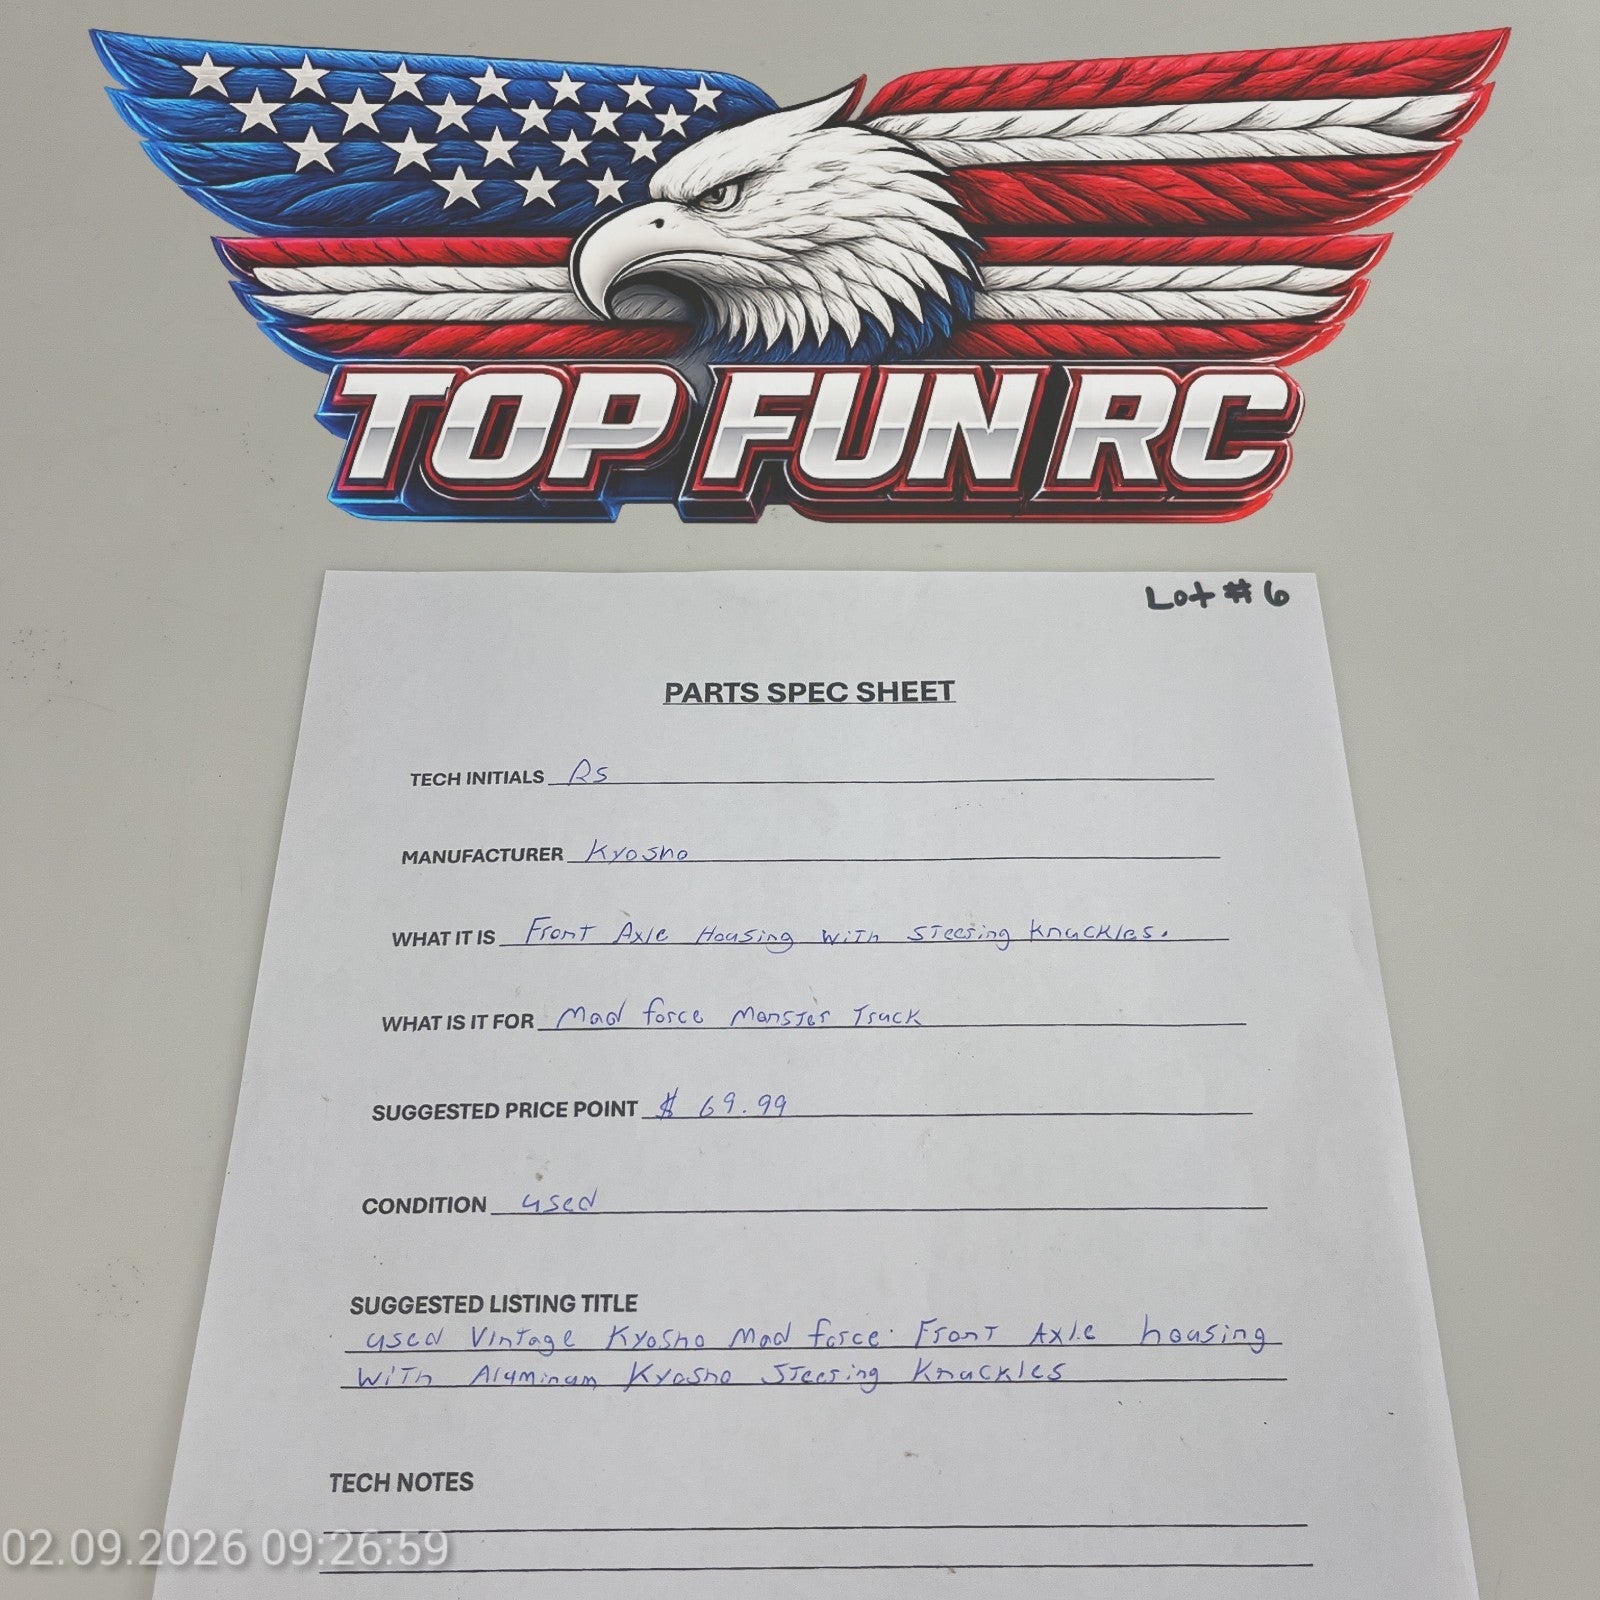 TOP FUN RC
Lot # 6
PARTS SPEC SHEET
TECH INITIALS RS
MANUFACTURER Kyosho
WHAT IT IS Front Axle Housing With Steering Knuckles.
WHAT IS IT FOR Mad force Monster Truck
SUGGESTED PRICE POINT $ 69.99
CONDITION used
SUGGESTED LISTING TITLE
used Vintage Kyosho Mad force Front Axle housing
With Aluminum Kyosho Steering Knuckles
TECH NOTES
02.09.2026 09:26:59